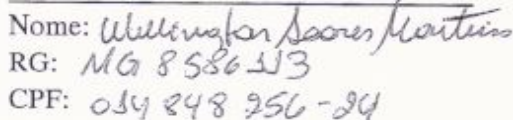 Nome: Wellington Soares Monteiro
RG: MG 8586113
CPF: 014 848 256-24